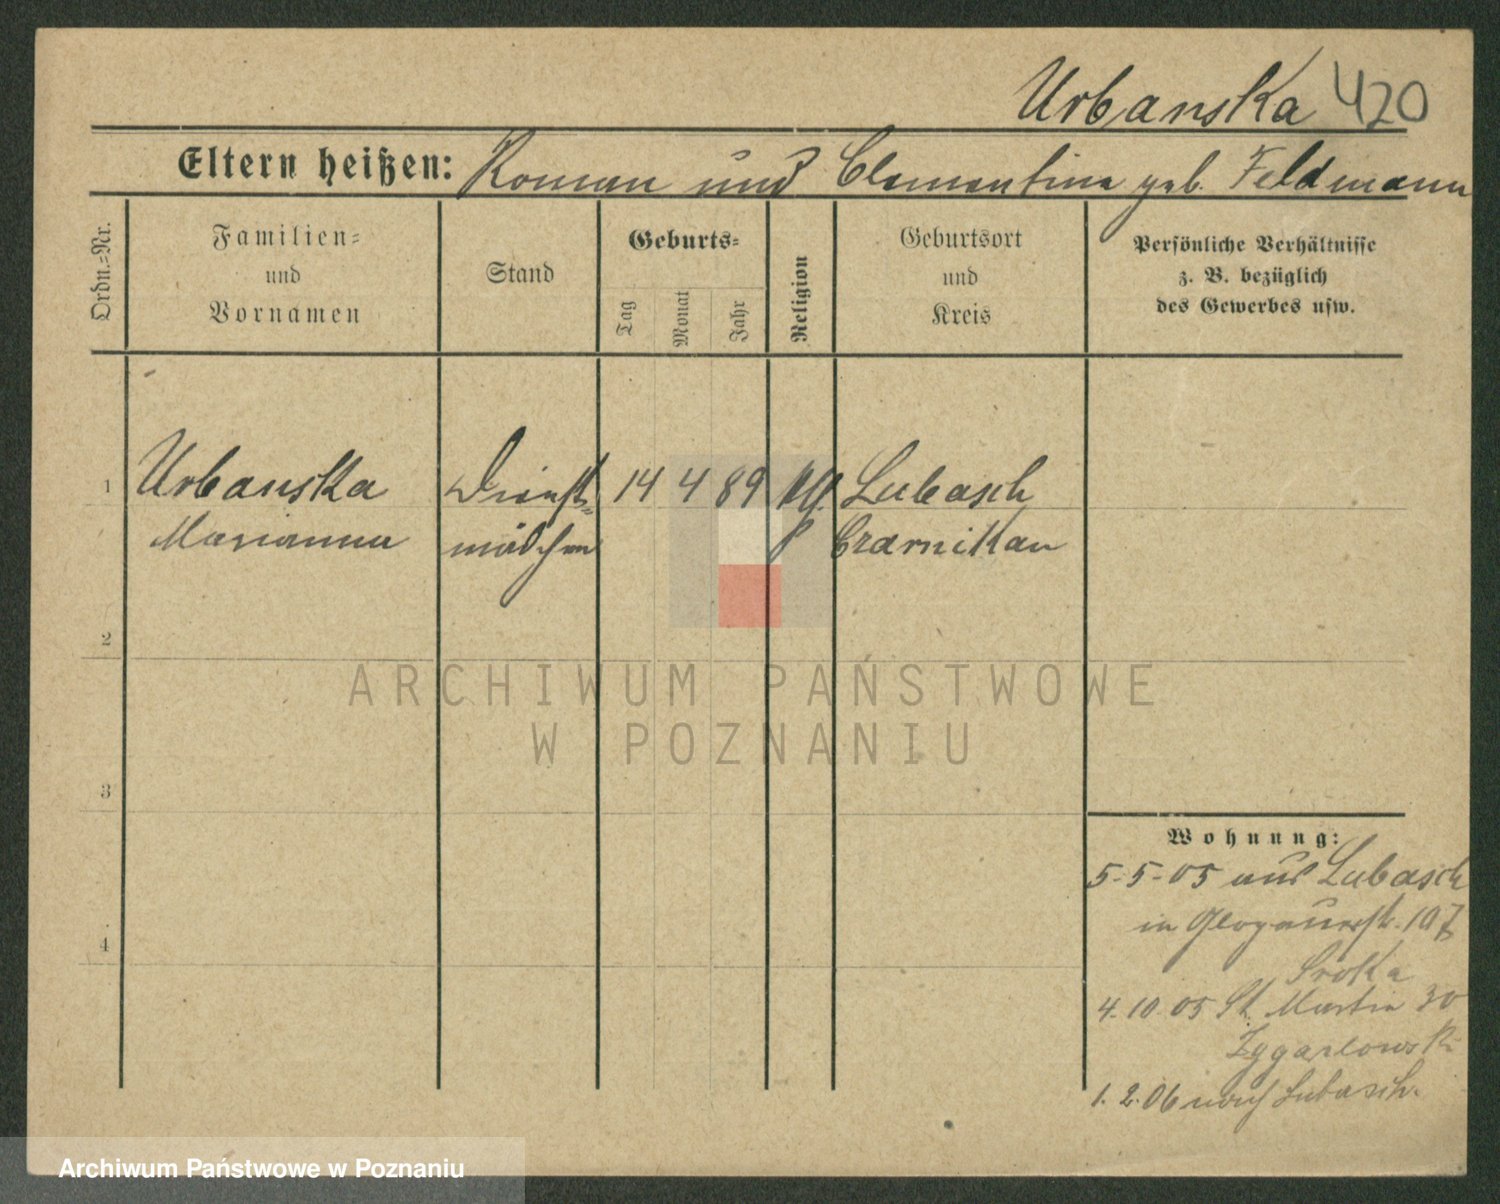 Urbanska 420
Eltern heißen: Roman und Clementina geb. Feldmann
Ordn.=Nr.
Familien=
und
Vornamen
Stand
Geburts=
Tag
Monat
Jahr
Religion
Geburtsort
und
Kreis
Persönliche Verhältnisse
z. B. bezüglich
des Gewerbes usw.
1 Urbanska Dienst= 14 4 89 Lubasch
Marianna mädchen Czarnikau
2
3
4
Wohnung:
5-5-05 aus Lubasch
in Glogauerstr. 107
Sroka
4. 10. 05 St. Martin 30
1. 2. 06 nach Lubasch.
ARCHIWUM PAŃSTWOWE
W POZNANIU
Archiwum Państwowe w Poznaniu